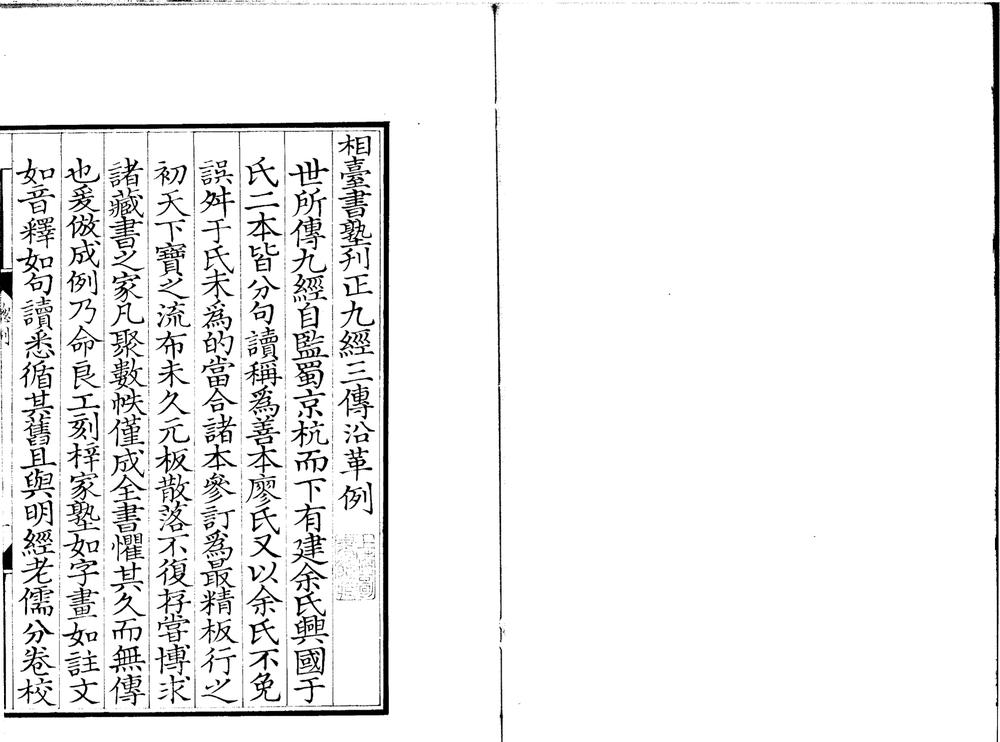 相臺書塾刊正九經三傳沿革例
世所傳九經自監蜀京杭而下有建余氏興國于
氏二本皆分句讀稱爲善本廖氏又以余氏不免
誤舛于氏未爲的當合諸本參訂爲最精板行之
初天下寶之流布未久元板散落不復存嘗博求
諸藏書之家凡聚數帙僅成全書懼其久而無傳
也爰倣成例乃命良工刻梓家塾如字畫如註文
如音釋如句讀悉循其舊且與明經老儒分卷校